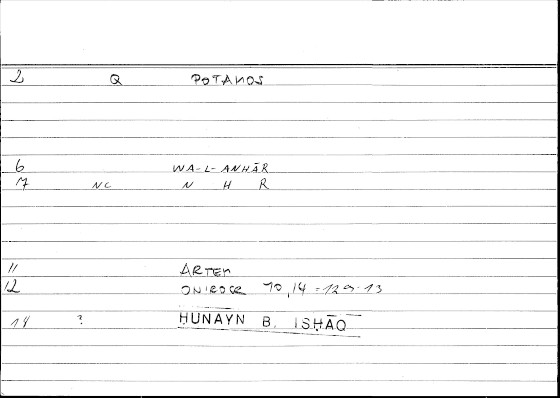 2 Q POTAMOS
6 WA-L-ANHĀR
7 NC N H R
11 ARTEM
12 ONIROCR 10,14 = 129.13
14 ? ḤUNAYN B. ISḤĀQ